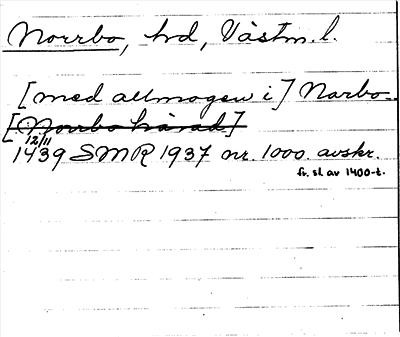 Norrbo, hd, Västm. l.
[med allmogen i] Narbo-
[Norrbo härad]
12/11
1439 SMR 1937 nr. 1000. avskr.
fr. sl. av 1400-t.